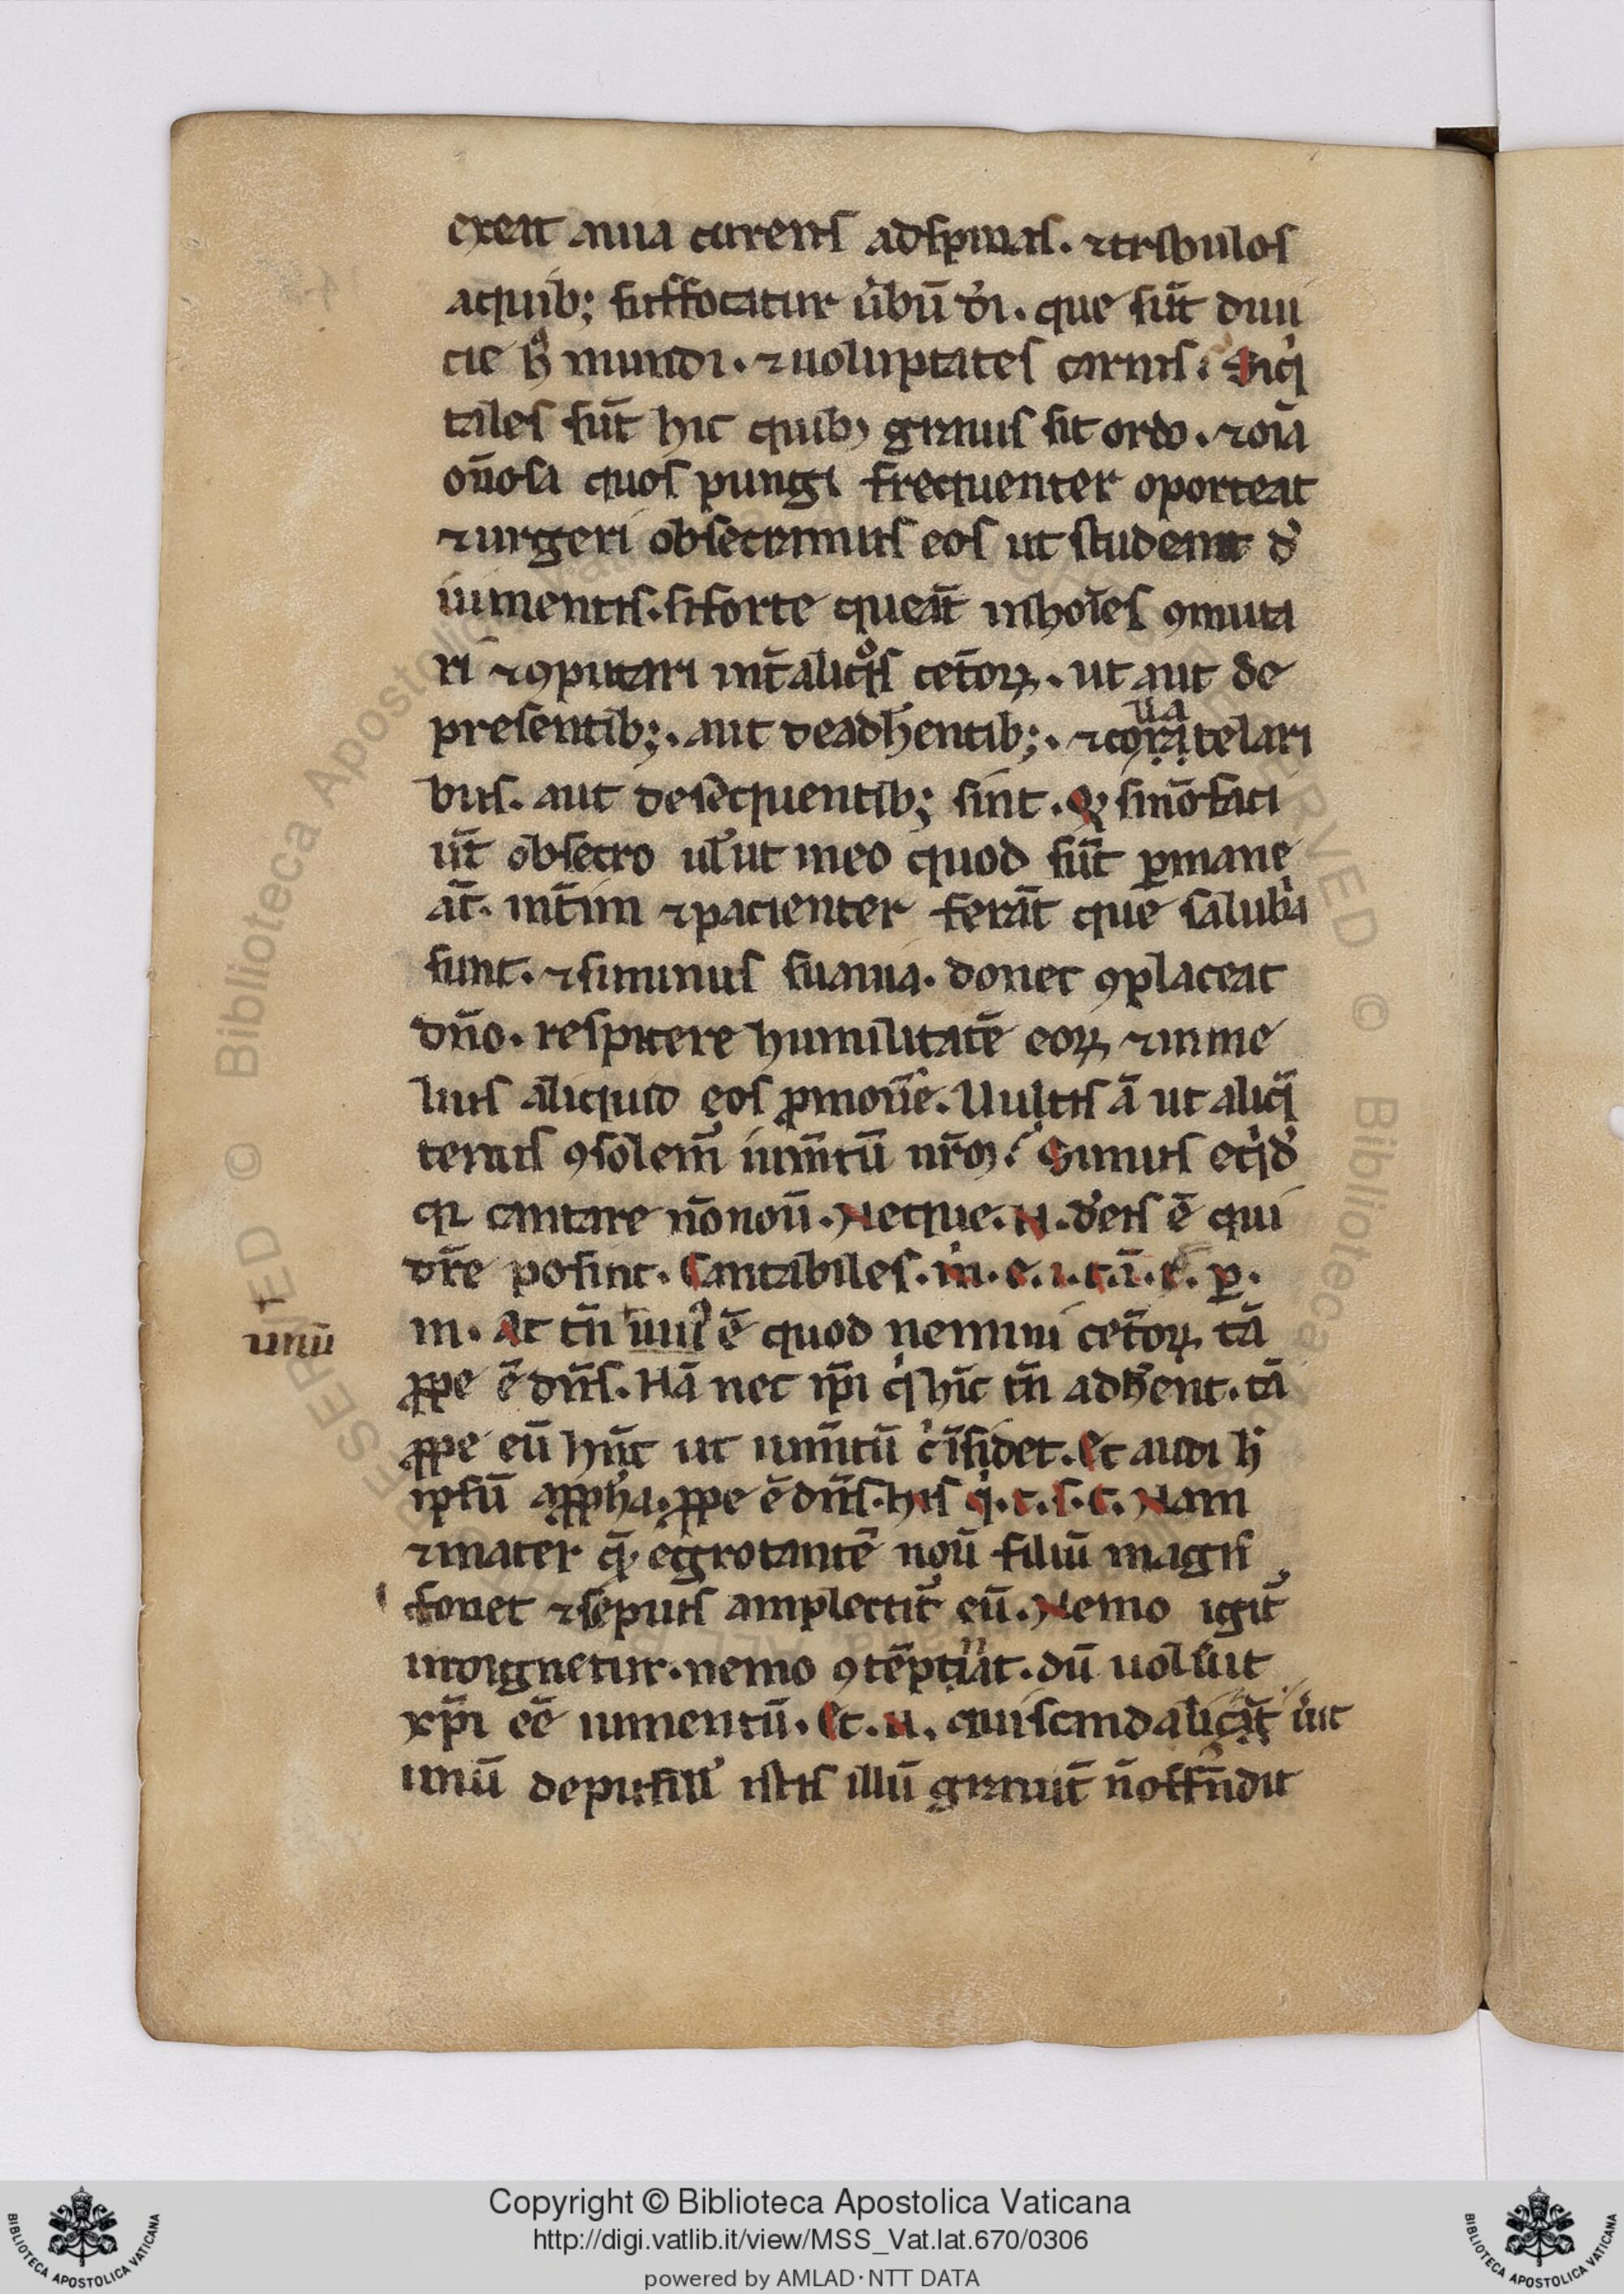 exeat aut a carens ad spinas. ⁊ tribulos
a quib; suffocatur ůbū dı̃. que sūt diui
cie hͦ mundi. ⁊ uoluptates carnis. Siq̇
tales sūt hic quib; grauis sit ordo. ⁊ oı̄a
on̄osa quos pungi frequenter oporteat
⁊ urgeri obsecramus eos ut studeant d̾
iumentis. si forte queāt in hoı̄es ꝯmuta
ri ⁊ ꝯputari int̄ aliqͦs cet̄oꝝ. ut aut de
presentib;. aut de adh̄entib;. ⁊ co telari
ua
bus. aut de sequentib; sint. Qͥ si nō faci
ūt obsecro ut meo quod sūt ꝑmane
āt. int̄im ⁊ pacienter ferāt que salubͥa
sunt. ⁊ si minus suauia. donec ꝯplaceat
dn̄o. respicere humilitatē eoꝝ ⁊ in me
lius aliquid eos ꝓmou̾e. Uultis ā ut aliq̄
tenus ꝯsolem̄ ium̄tū nr̄oꝝ. Simus eq̇d̾
qꝛ cantare nō nou̾. Neque. N. d̾ est ē qui
dr̄e possint. Cantabiles. m̊. e. i. t. ı̄. l. ꝑ.
m. At tn̄ ē quod nemini cet̄oꝝ tā
unū
ꝓpe ē dn̄s. Nā nec ip̄i q̇s hı̄c tn̄ adh̄ent. tā
ꝓpe eū hn̄t ut ium̄tū cͥ ı̄sidet. Et audi hͥ
ipsū apꝓpha. ꝓpe ē dn̄s. his q̇. t. s. c. Nam
⁊ mater qͣ egrotantē nou̾ filiū magis
fouet ⁊ sepius amplectit̾ eū. Nemo igit̾
indignetur. nemo ꝯtēpnat. dū uoluit
xp̄i eē iumentū. Et. N. qui scandaliȥāt iut
unū de pusill̾ istis illū grauit̾ n̄ offn̄dit
Copyright © Biblioteca Apostolica Vaticana
http://digi.vatlib.it/view/MSS_Vat.lat.670/0306
powered by AMLAD·NTT DATA
BIBLIOTECA APOSTOLICA VATICANA
BIBLIOTECA APOSTOLICA VATICANA